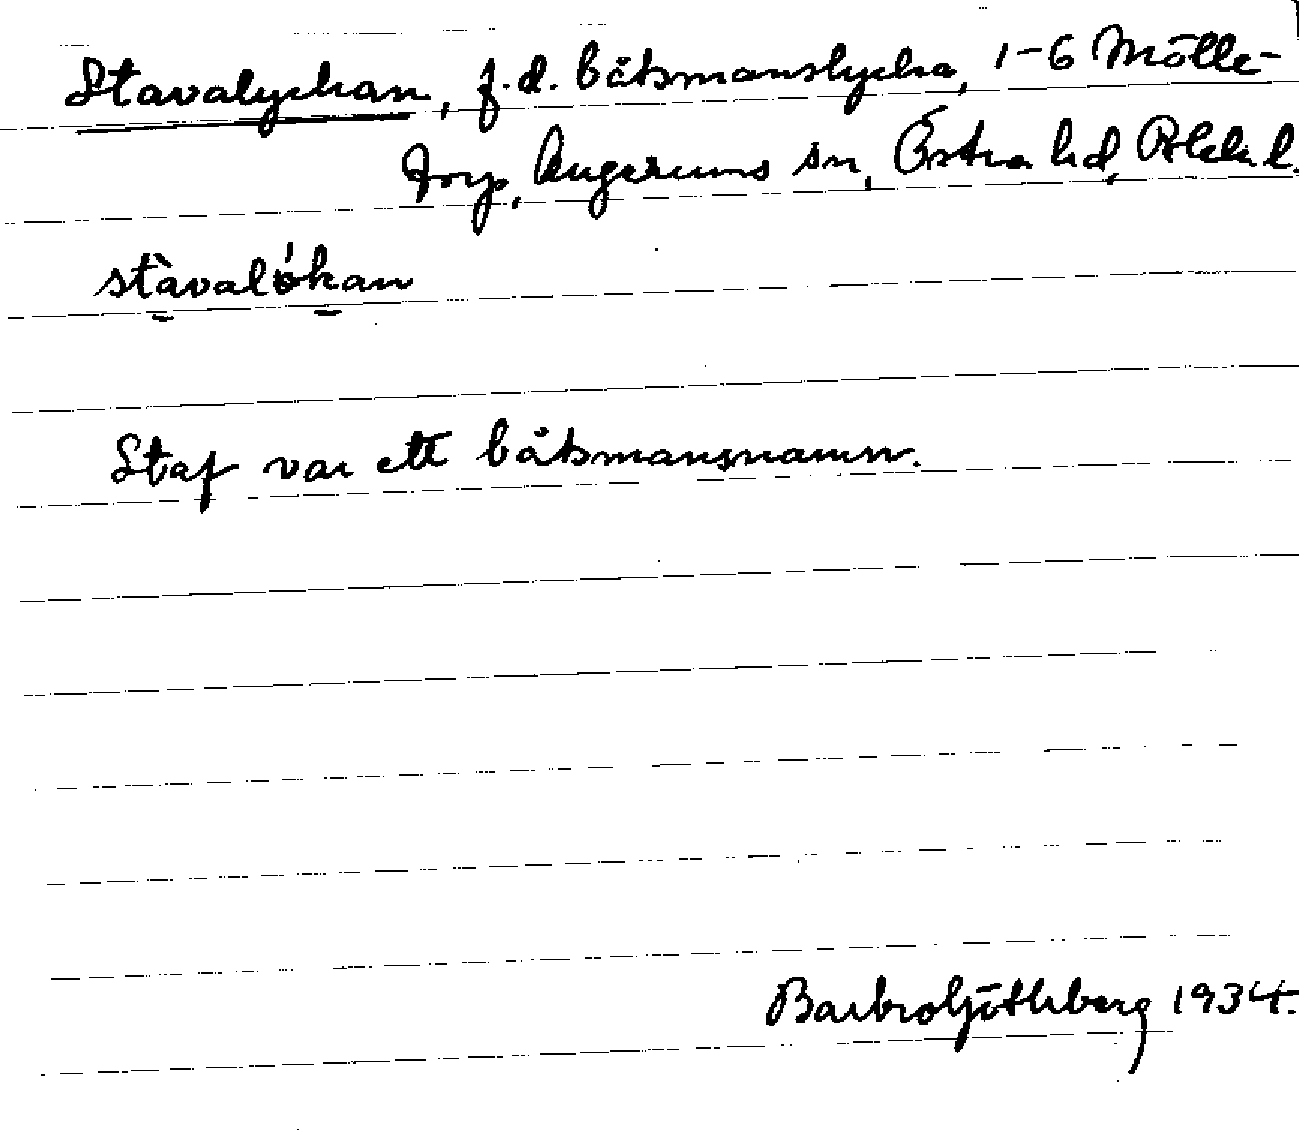 Stavalyckan, f.d. båtsmanslycka, 1-6 Mölle-
torp, Augerums sn, Östra hd, Blek. l.
stàvalǿkan
Staf var ett båtsmansnamn.
Barbro Götherberg 1934.